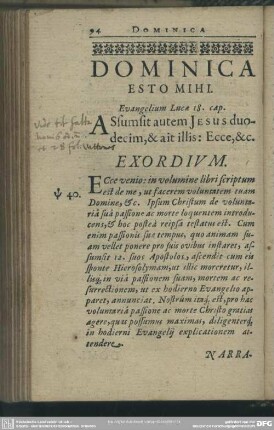 94 DOMINICA
DOMINICA
ESTO MIHI.
Evangelium Lucæ 18. cap.
ASsumsit autem JESUS duo-
decim, & ait illis: Ecce, &c.
EXORDIVM.
ECce venio: in volumine libri scriptum
ψ 40.
est de me, ut facerem voluntatem tuam
Domine, &c. Ipsum Christum de volunta-
riâ suâ passione ac morte loquentem introdu-
cens, & hoc posteà reipsâ testatus est. Cum
enim passionis suæ tempus, quo animam su-
am vellet ponere pro suis ovibus instaret, as-
sumsit 12. suos Apostolos, ascendit cum eis
sponte Hierosolymam, ut illic moreretur, il-
lisq́; in viâ passionem suam, mortem ac re-
surrectionem, ut ex hodierno Evangelio ap-
paret, annunciat. Nostrûm itaq́; est, pro hac
voluntariâ passione ac morte Christo gratias
agere, quàm possumus maximas, diligenterq́;
in hodierni Evangelij explicationem at-
tendere.
NARRA-